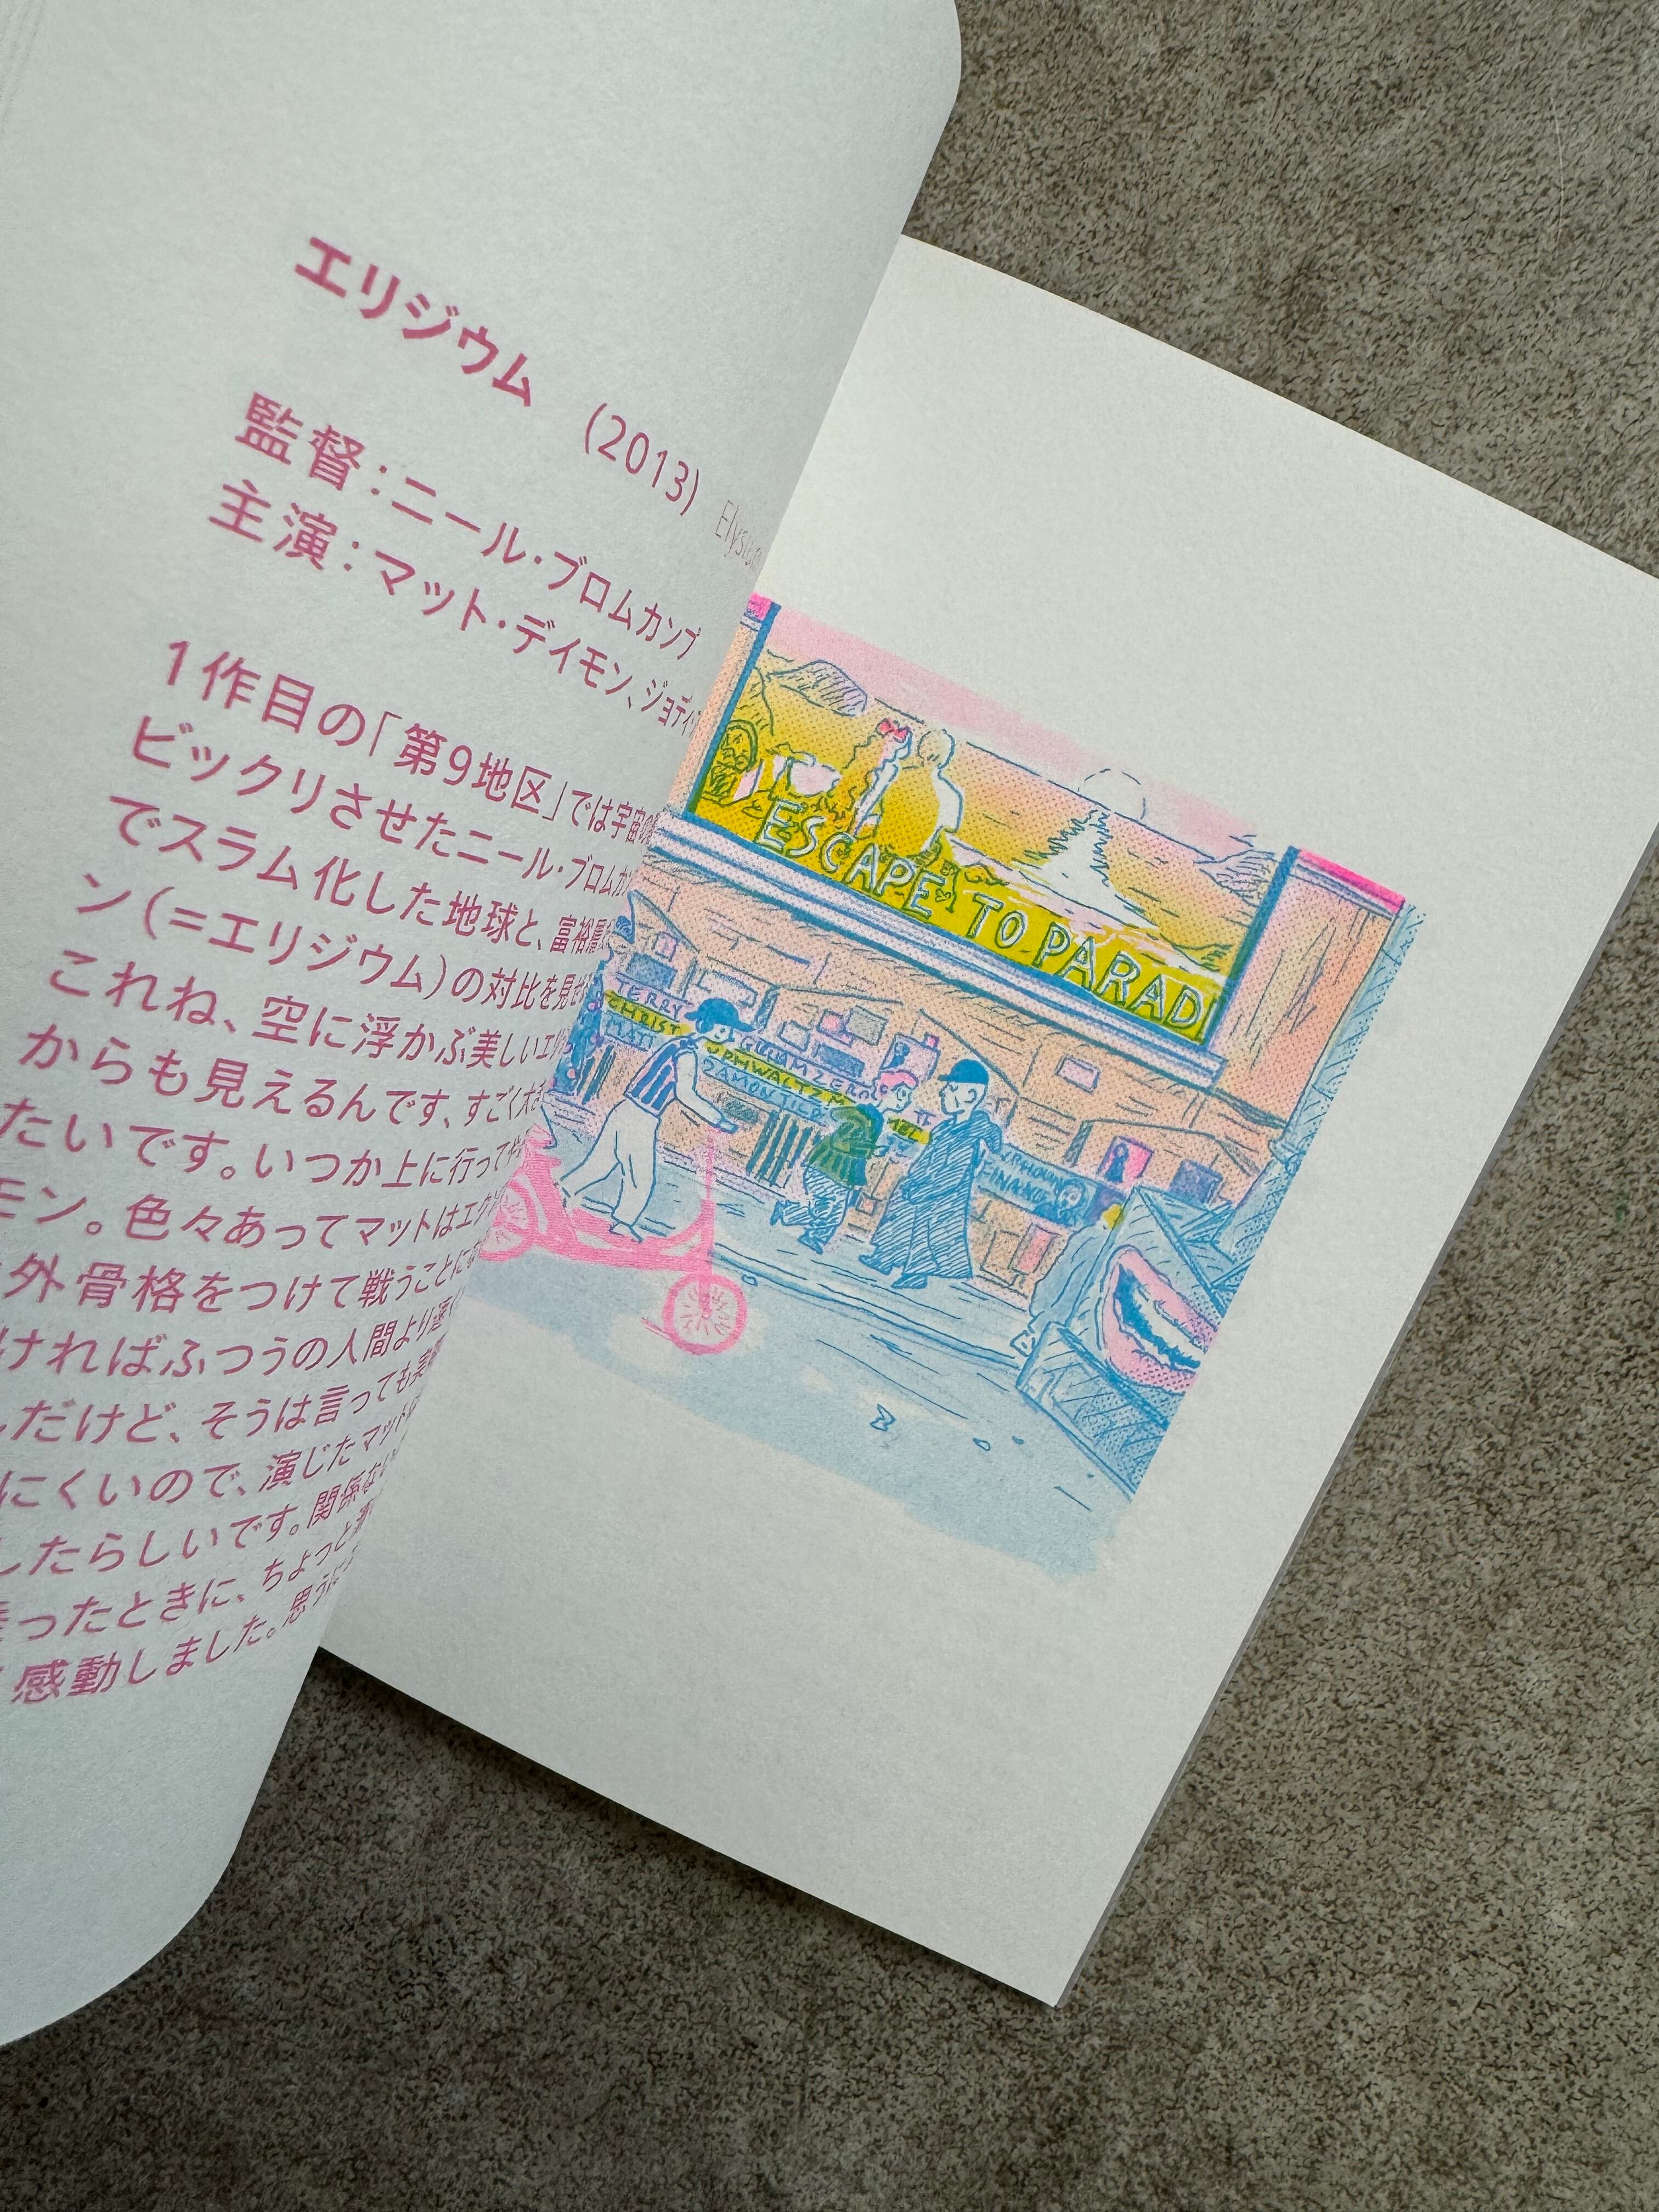 エリジウム (2013) Elysium
監督：ニール・ブロムカンプ
主演：マット・デイモン、ジョディ
1作目の「第9地区」では宇宙
ビックリさせたニール・ブロムカン
でスラム化した地球と、富裕層
ン（=エリジウム）の対比を見せ
これね、空に浮かぶ美しいエリ
からも見えるんです、すごく大き
たいです。いつか上に行って
モン。色々あってマットはエク
外骨格をつけて戦うことにな
ければふつうの人間より速く
だけど、そうは言っても実
にくいので、演じたマット
したらしいです。関係ない
ったときに、ちょっと
感動しました。思うに
ESCAPE TO PARADI
TERRY
CHRIST
MATT